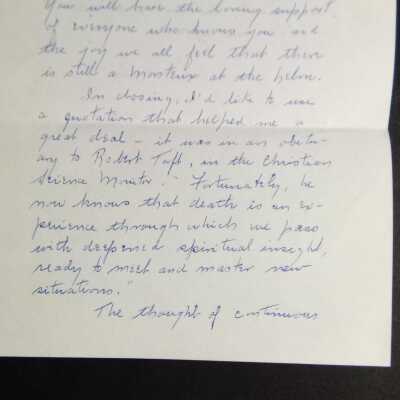 You will have the loving support
of everyone who knows you and
the joy we all feel that there
is still a Monteux at the helm.
In closing, I'd like to use
a quotation that helped me a
great deal – it was in an obitu-
ary to Robert Taft, in the Christian
Science Monitor: "Fortunately, he
now knows that death is an ex-
perience through which we pass
with deepened spiritual insight,
ready to meet and master new
situations."
The thought of continuous